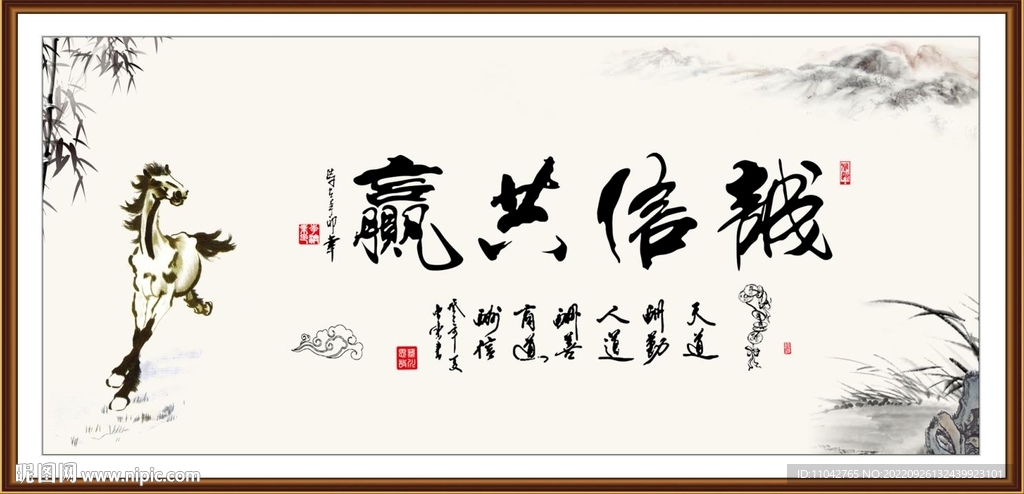 誠信共贏
時在辛卯年
天道
酬勤
人道
酬善
商道
酬信
昵图网 www.nipic.com
ID:11042765 NO:20220926132439923101